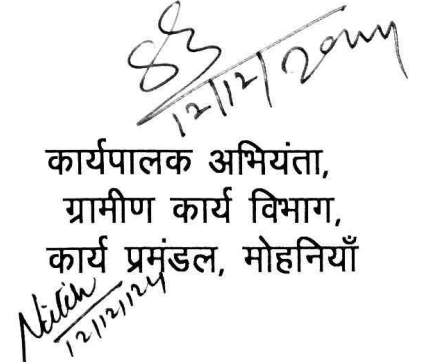 12/12/2024
कार्यपालक अभियंता,
ग्रामीण कार्य विभाग,
कार्य प्रमंडल, मोहनियाँ
Nitish
12/12/24